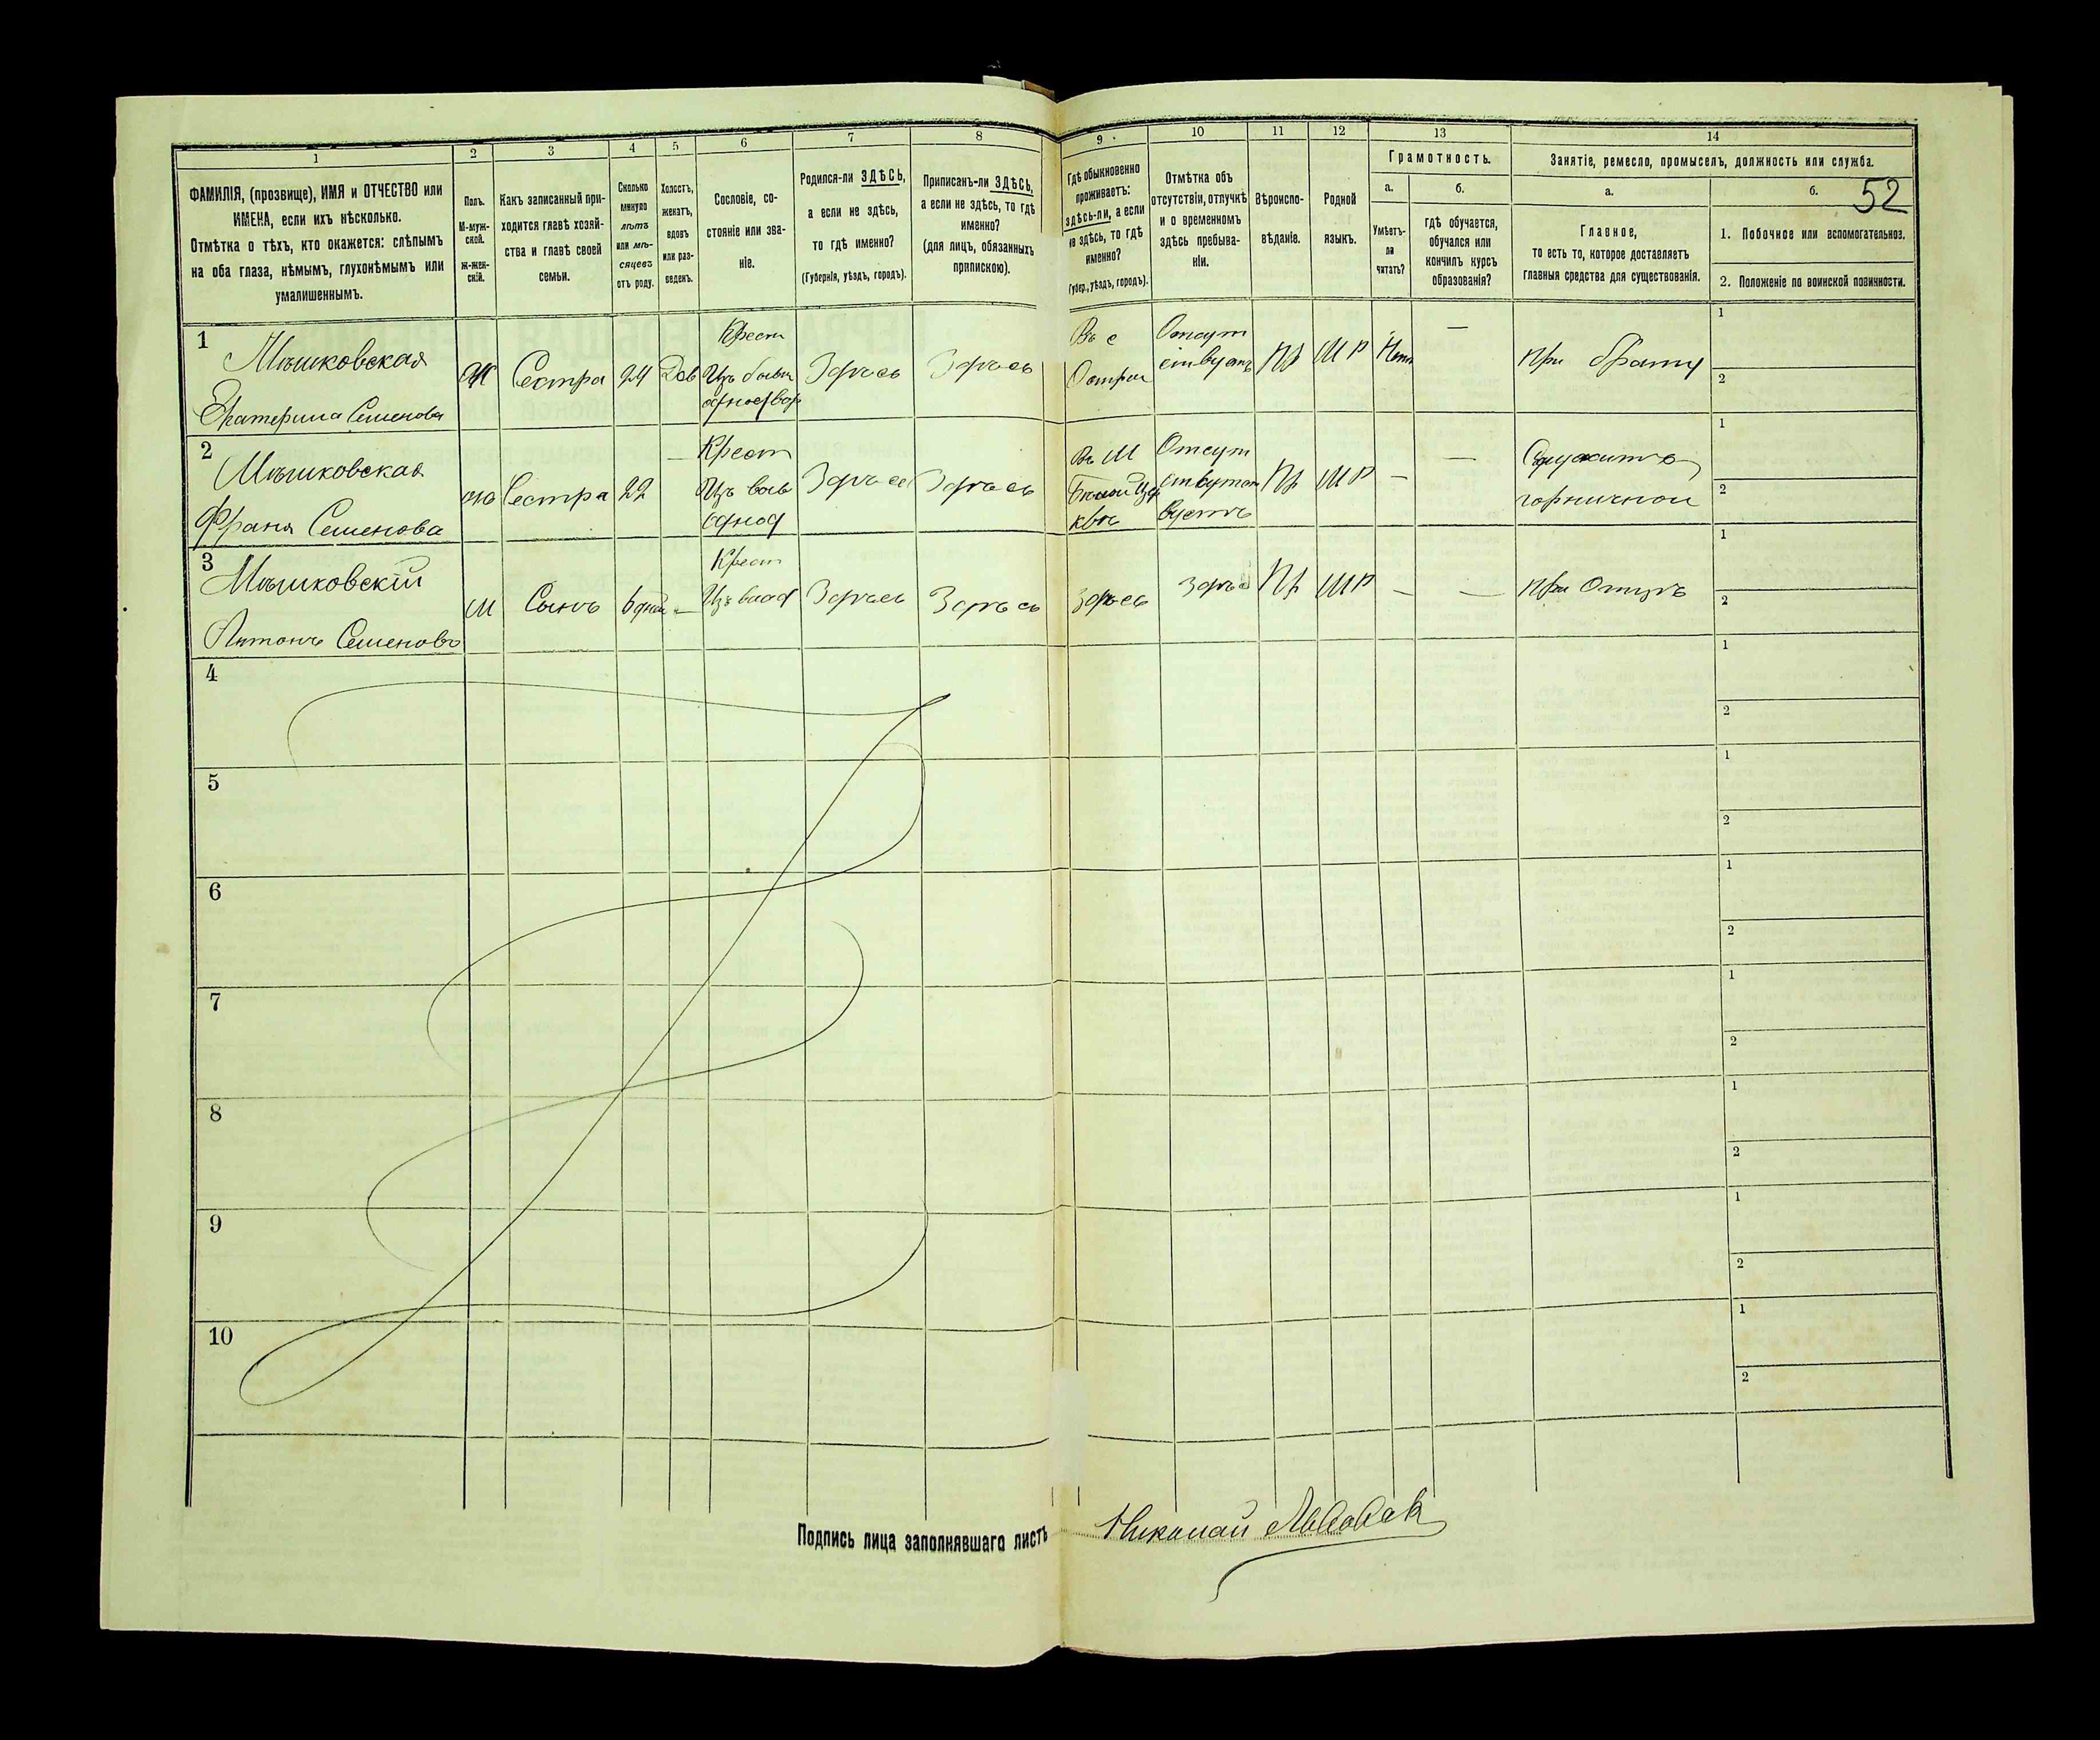 1
2
3
4
5
6
7
8
9
10
11
12
13
14
ФАМИЛІЯ, (прозвище), ИМЯ и ОТЧЕСТВО или
ИМЕНА, если ихъ нѣсколько.
Отмѣтка о тѣхъ, кто окажется: слѣпымъ
на оба глаза, нѣмымъ, глухонѣмымъ или
умалишеннымъ.
Полъ.
М-муж-
ской.
Ж-жен-
скій.
Какъ записанный при-
ходится главѣ хозяй-
ства и главѣ своей
семьи.
Сколько
минуло
лѣтъ
или мѣ-
сяцевъ
отъ роду.
Холостъ,
женатъ,
вдовъ
или раз-
веденъ.
Сословіе, со-
стояніе или зва-
ніе.
Родился-ли ЗДѢСЬ,
а если не здѣсь,
то гдѣ именно?
(Губернія, уѣздъ, городъ).
Приписанъ-ли ЗДѢСЬ,
а если не здѣсь, то гдѣ
именно?
(для лицъ, обязанныхъ
припискою).
Гдѣ обыкновенно
проживаетъ:
здѣсь-ли, а если
не здѣсь, то гдѣ
именно?
Губер., уѣздъ, городъ).
Отмѣтка объ
отсутствіи, отлучкѣ
и о временномъ
здѣсь пребыва-
ніи.
Вѣроиспо-
вѣданіе.
Родной
языкъ.
Грамотность.
а.
Умѣетъ-
ли
читать?
б.
гдѣ обучается,
обучался или
кончилъ курсъ
образованія?
Занятіе, ремесло, промыселъ, должность или служба.
а.
Главное,
то есть то, которое доставляетъ
главныя средства для существованія.
б.
52
1. Побочное или вспомогательное.
2. Положеніе по воинской повинности.
1
Мѣшковская
Екатерина Семенова
Ж
Сестра
24
Крест
Здѣсь
Здѣсь
Въ с
Отсут
ствуетъ
Пр
М Р
Нетъ
—
При брату
1
2
2
Мѣшковская
Франя Семенова
Сестра
22
—
Крест
Однод
Здѣсь
Здѣсь
Въ М
Отсут
Пр
М Р
—
—
Служитъ
горничной
1
2
3
Мѣшковскій
Антонъ Семеновъ
М
Сынъ
—
Крест
Здѣсь
Здѣсь
Здѣсь
Здѣсь
Пр
М Р
—
—
При Отцѣ
1
2
4
1
2
5
1
2
6
1
2
7
1
2
8
1
2
9
1
2
10
1
2
Подпись лица заполнявшаго листъ
Николай